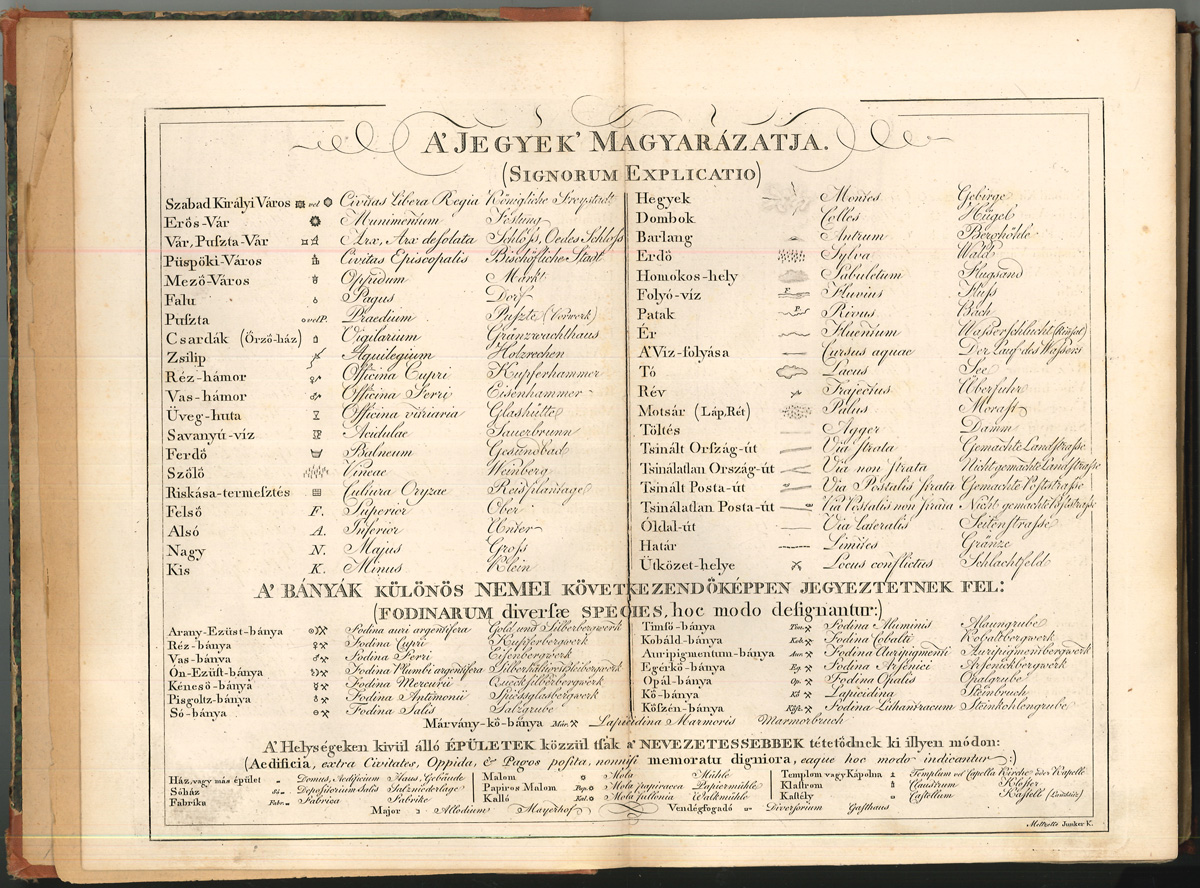 A' JEGYEK' MAGYARÁZATJA.
(SIGNORUM EXPLICATIO)
Szabad Királyi Város vel Civitas Libera Regia Königliche Freystadt
Erös-Vár Munimentum Festung
Vár, Puſzta-Vár Arx, Arx desolata Schloſs, Oedes Schloſs
Püspöki-Város Civitas Episcopalis Bischöfliche Stadt
Mezö-Város Oppidum Markt
Falu Pagus Dorf
Puſzta vel P. Praedium Puſzta (Vorwerk)
Csardák (Örzö-ház) Vigilarium Gränzwachthaus
Zsilip Aquilegium Holzrechen
Réz-hámor Officina Cupri Kupferhammer
Vas-hámor Officina Ferri Eisenhammer
Üveg-huta Officina vitriaria Glashütte
Savanyú-víz Acidulae Sauerbrunn
Ferdö Balneum Gesundbad
Szölö Vineae Weinberg
Riskása-termeſztés Cultura Oryzae Reisplantage
Felsö F. Superior Ober
Alsó A. Inferior Unter
Nagy N. Majus Groſs
Kis K. Minus Klein
Hegyek Montes Gebirge
Dombok Colles Hügel
Barlang Antrum Berghöhle
Erdö Sylva Wald
Homokos-hely Sabuletum Flugsand
Folyó-víz F. Fluvius Fluſs
Patak P. Rivus Bach
Ér Fluentum Waſserschlucht (Rinſal)
A' Viz-folyása Cursus aquae Der Lauf des Waſsers
Tó Lacus See
Rév Trajectus Überfuhr
Motsár (Láp, Rét) Palus Moraſt
Töltés Agger Damm
Tsinált Orſzág-út Via strata Gemachte Landſtraſse
Tsinálatlan Ország-út Via non strata Nicht gemachte Landſtraſse
Tsinált Posta-út Via Postalis strata Gemachte Poſtstraſse
Tsinálatlan Posta-út Via Postalis non strata Nicht gemachte Poſtstraſse
Óldal-út Via Lateralis Seitenſtraſse
Határ Limites Gränze
Ütközet-helye Locus conflictus Schlachtfeld
A' BÁNYÁK KÜLÖNÖS NEMEI KÖVETKEZENDÖKÉPPEN JEGYEZTETNEK FEL:
(FODINARUM diversæ SPECIES, hoc modo deſignantur:)
Arany-Ezüst-bánya Fodina auri argentifera Gold und Silberbergwerk
Réz-bánya Fodina Cupri Kupferbergwerk
Vas-bánya Fodina Ferri Eisenbergwerk
Ón-Ezüſt-bánya Fodina Plumbi argentifera Silberhältigesbleibergwerk
Kénesö-bánya Fodina Mercurii Quecksilberbergwerk
Pisgoltz-bánya Fodina Antimonii Spiessglasbergwerk
Só-bánya Fodina Salis Salzgrube
Timsó-bánya Tim. Fodina Aluminis Alaungrube
Kobáld-bánya Kob. Fodina Cobalti Kobaltbergwerk
Auripigmentum-bánya Aur. Fodina Auripigmenti Auripigmentbergwerk
Egérkö-bánya Eg. Fodina Arsenici Arsenikbergwerk
Opál-bánya Op. Fodina Opalis Opalgrube
Kö-bánya Kö Lapicidina Steinbruch
Köſzén-bánya Köſz. Fodina Lithantracum Steinkohlengrube
Márvány-kö-bánya Már. Lapicidina Marmoris Marmorbruch
A' Helységeken kivül álló ÉPÜLETEK közzül tſak a' NEVEZETESSEBBEK tétetödnek ki illyen módon:
(Aedificia, extra Civitates, Oppida, & Pagos poſita, nonniſi memoratu digniora, eaque hoc modo indicantur:)
Ház, vagy más épület Domus, Aedificium Haus, Gebäude
Sóház Só Depositorium Salis Salzniederlage
Fabrika Fabr. Fabrica Fabrike
Malom Mola Mühle
Papiros Malom Pap. Mola papiracea Papiermühle
Kalló Kal. Mola fullonia Walkmühle
Templom vagy Kápolna Templum vel Capella Kirche oder Kapelle
Klastrom Claustrum Kloſter
Kastély Castellum Kaſtell
Major Allodium Mayerhof
Vendégfogadó Diversorium Gaſthaus
Junker K.